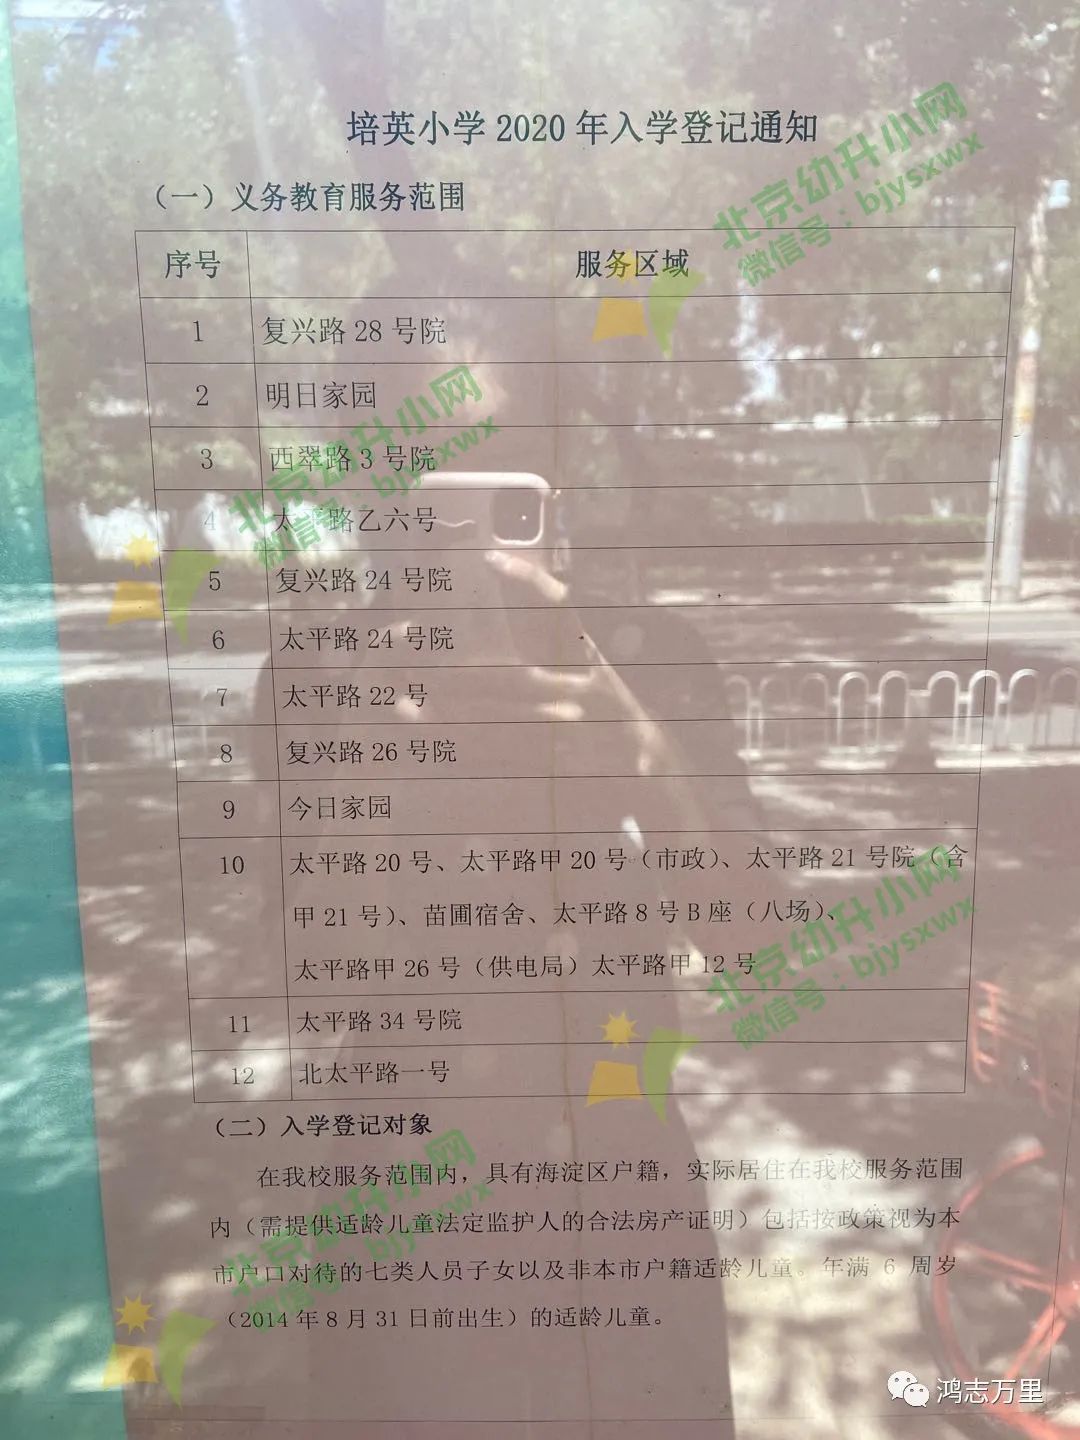 培英小学 2020 年入学登记通知
（一）义务教育服务范围
序号 服务区域
1 复兴路 28 号院
2 明日家园
3 西翠路 3 号院
4 太 路乙六号
5 复兴路 24 号院
6 太平路 24 号院
7 太平路 22 号
8 复兴路 26 号院
9 今日家园
10 太平路 20 号、太平路甲 20 号（市政）、太平路 21 号院（含
甲 21 号）、苗圃宿舍、太平路 8 号 B 座（八场）、
太平路甲 26 号（供电局）太平路甲 12 号
11 太平路 34 号院
12 北太平路一号
（二）入学登记对象
在我校服务范围内，具有海淀区户籍，实际居住在我校服务范围
内（需提供适龄儿童法定监护人的合法房产证明）包括按政策视为本
市户口对待的七类人员子女以及非本市户籍适龄儿童。年满 6 周岁
（2014 年 8 月 31 日前出生）的适龄儿童。
北京幼升小网
微信号：bjysxwx
北京幼升小网
微信号：bjysxwx
北京幼升小网
微信号：bjysxwx
北京幼升小网
微信号：bjysxwx
鸿志万里